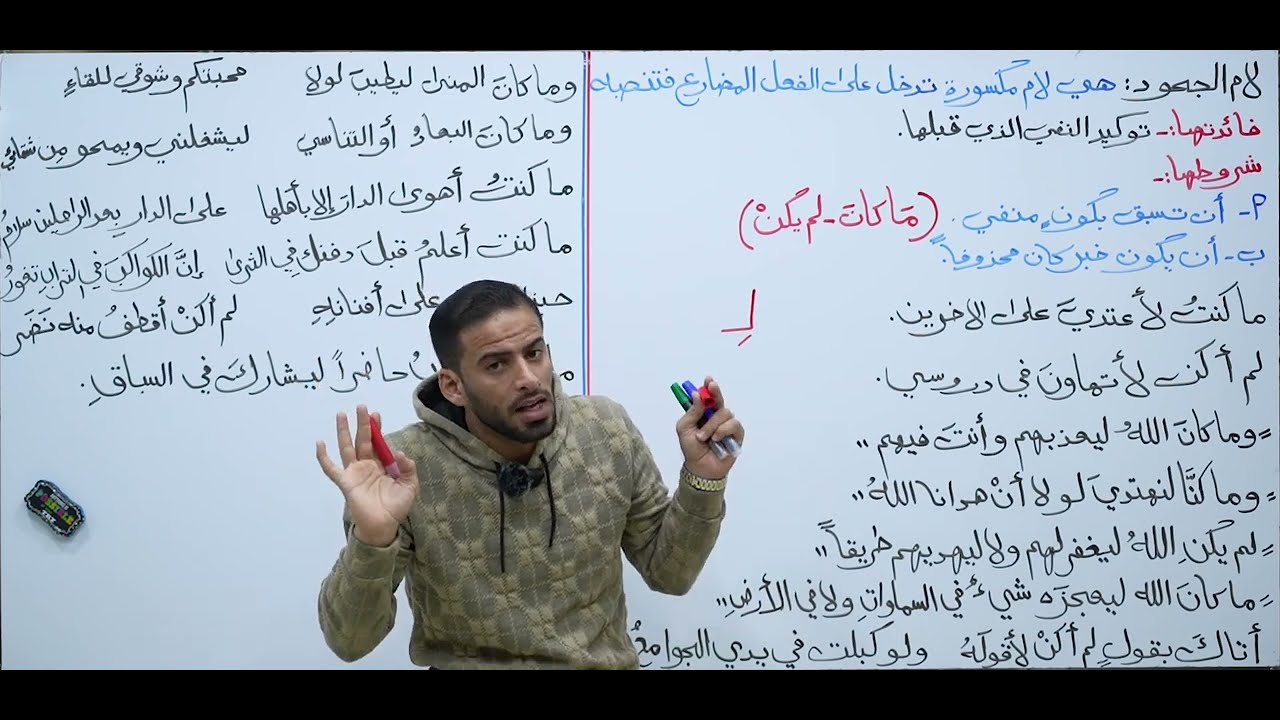 لام الجحود: هي لام مكسورة تدخل على الفعل المضارع فتنصبه
فائدتها:- توكيد النفي الذي قبلها.
شروطها:-
أ- أن تسبق بكونٍ منفي. (مَا كانَ - لم يكنْ)
ب- أن يكون خبر كان محذوفاً.
لِـ
ما كنتُ لأعتديَ على الآخرين.
لم أكن لأتهاونَ في دروسي.
"وما كانَ اللهُ ليعذبهم وأنتَ فيهم"
"وما كنَّا لنهتديَ لولا أنْ هدانا اللهُ"
"لم يكنِ اللهُ ليغفر لهم ولا ليهديهم طريقاً"
"ما كانَ الله ليعجزَه شيءٌ في السماواتِ ولا في الأرضِ"
أتاكَ بقولٍ لم أكنْ لأقولَهُ ولو كبلت في يدي الجوامعُ
وما كانَ المنى ليطيبَ لولا محبتكم وشوقي للقاءِ
وما كانَ البعادُ أو التناسي ليشغلني ويمحو مِن شقائي
ما كنتُ أهوى الدارَ إلا بأهلها على الدارِ بعد الراحلين سلامُ
ما كنت أعلمُ قبلَ دفنك في الثرى إنَّ الكواكبَ في الترابِ تغورُ
على أفنانِهِ لم أكنْ أقطفُ منه
حاضراً ليشاركَ في السباقِ.